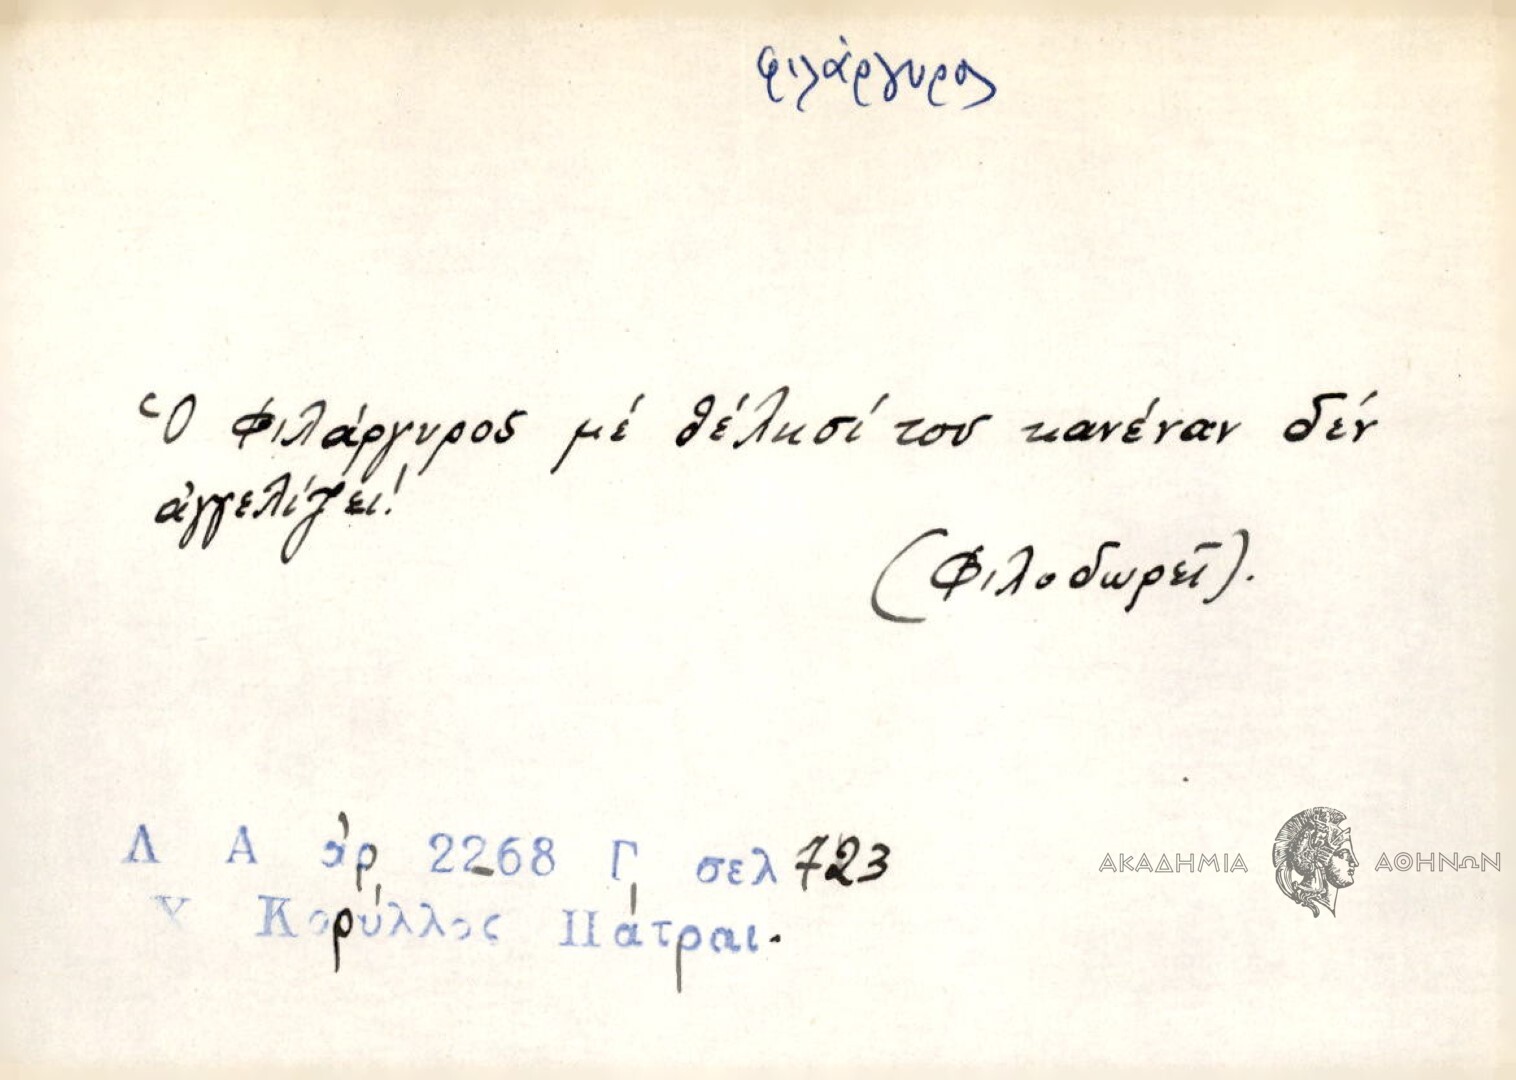 φιλάργυρος
Ὁ Φιλάργυρος μέ θέλησί του κανέναν δέν
ἀγγελίζει!
(Φιλοδωρεῖ).
Λ Α ἀρ 2268 Γ σελ 723
Χ Κορύλλος Πάτραι.
ΑΚΑΔΗΜΙΑ ΑΘΗΝΩΝ